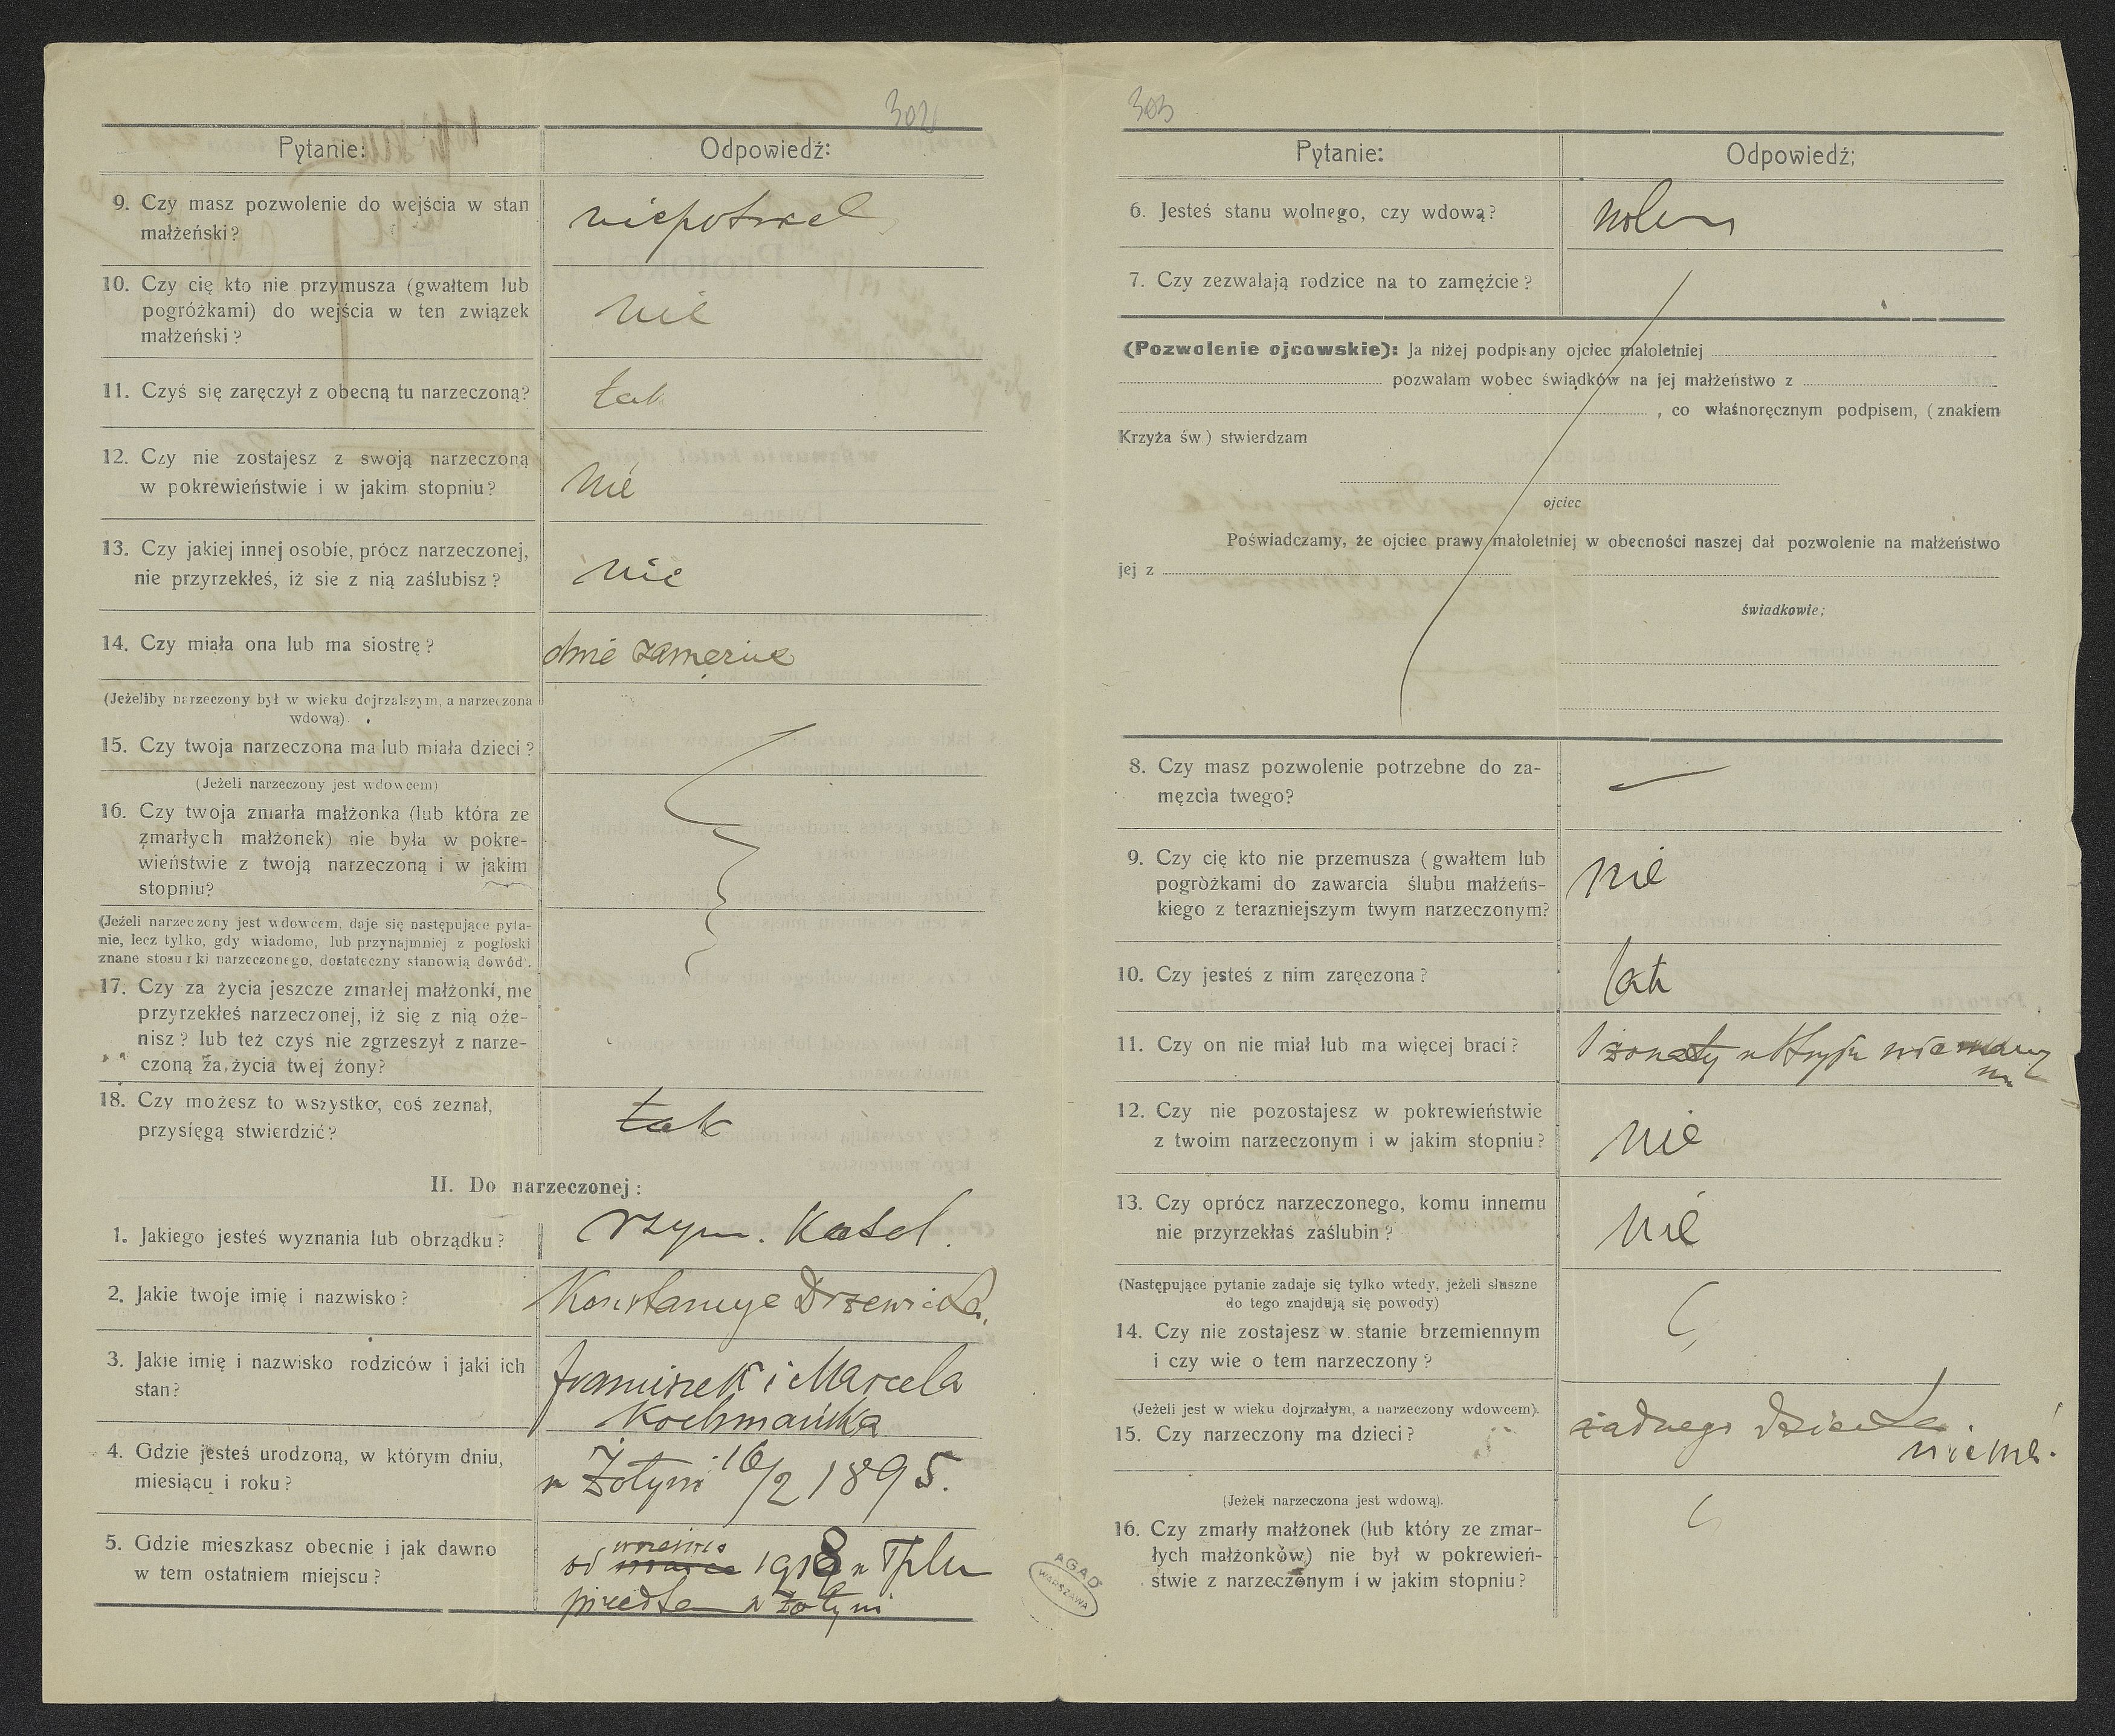 302
Pytanie: Odpowiedź:
9. Czy masz pozwolenie do wejścia w stan
małżeński?
niepotrzeb
10. Czy cię kto nie przymusza (gwałtem lub
pogróżkami) do wejścia w ten związek
małżeński?
nie
11. Czyś się zaręczył z obecną tu narzeczoną?
tak
12. Czy nie zostajesz z swoją narzeczoną
w pokrewieństwie i w jakim stopniu?
nie
13. Czy jakiej innej osobie, prócz narzeczonej,
nie przyrzekłeś, iż sie z nią zaślubisz?
nie
14. Czy miała ona lub ma siostrę?
dwie zamężne
(Jeżeliby narzeczony był w wieku dojrzalszym, a narzeczona
wdową).
15. Czy twoja narzeczona ma lub miała dzieci?
(Jeżeli narzeczony jest wdowcem)
16. Czy twoja zmarła małżonka (lub która ze
zmarłych małżonek) nie była w pokre-
wieństwie z twoją narzeczoną i w jakim
stopniu?
(Jeżeli narzeczony jest wdowcem, daje się następujące pyta-
nie, lecz tylko, gdy wiadomo, lub przynajmniej z pogłoski
znane stosunki narzeczonego, dostateczny stanowią dowód).
17. Czy za życia jeszcze zmarłej małżonki, nie
przyrzekłeś narzeczonej, iż się z nią oże-
nisz? lub też czyś nie zgrzeszył z narze-
czoną za życia twej żony?
18. Czy możesz to wszystko, coś zeznał,
przysięgą stwierdzić?
tak
II. Do narzeczonej:
1. Jakiego jesteś wyznania lub obrządku?
rzym. katol.
2. Jakie twoje imię i nazwisko?
Konstancye Drzewicka.
3. Jakie imię i nazwisko rodziców i jaki ich
stan?
Franciszek i Marcela
Kochmańska
4. Gdzie jesteś urodzoną, w którym dniu,
miesiącu i roku?
w Żołyni 16/2 1895.
5. Gdzie mieszkasz obecnie i jak dawno
w tem ostatniem miejscu?
września
od marca 1918 w Tplu
przedtem w Żołyni
303
Pytanie: Odpowiedź:
6. Jesteś stanu wolnego, czy wdową?
wolny
7. Czy zezwalają rodzice na to zamęźcie?
(Pozwolenie ojcowskie): Ja niżej podpisany ojciec małoletniej
pozwalam wobec świądków na jej małżeństwo z
, co własnoręcznym podpisem, (znakiem
Krzyża św.) stwierdzam
ojciec
Poświadczamy, że ojciec prawy małoletniej w obecności naszej dał pozwolenie na małżeństwo
jej z
świadkowie:
8. Czy masz pozwolenie potrzebne do za-
męzcia twego?
—
9. Czy cię kto nie przemusza (gwałtem lub
pogróżkami do zawarcia ślubu małżeńs-
kiego z terazniejszym twym narzeczonym?
nie
10. Czy jesteś z nim zaręczona?
tak
11. Czy on nie miał lub ma więcej braci?
1 żonaty
12. Czy nie pozostajesz w pokrewieństwie
z twoim narzeczonym i w jakim stopniu?
nie
13. Czy oprócz narzeczonego, komu innemu
nie przyrzekłaś zaślubin?
nie
(Następujące pytanie zadaje się tylko wtedy, jeżeli słuszne
do tego znajdują się powody)
14. Czy nie zostajesz w stanie brzemiennym
i czy wie o tem narzeczony?
(Jeżeli jest w wieku dojrzałym, a narzeczony wdowcem).
15. Czy narzeczony ma dzieci?
żadnego dziecka
niema.
(Jeżeli narzeczona jest wdową).
16. Czy zmarły małżonek (lub który ze zmar-
łych małżonków) nie był w pokrewień-
stwie z narzeczonym i w jakim stopniu?
AGAD
WARSZAWA